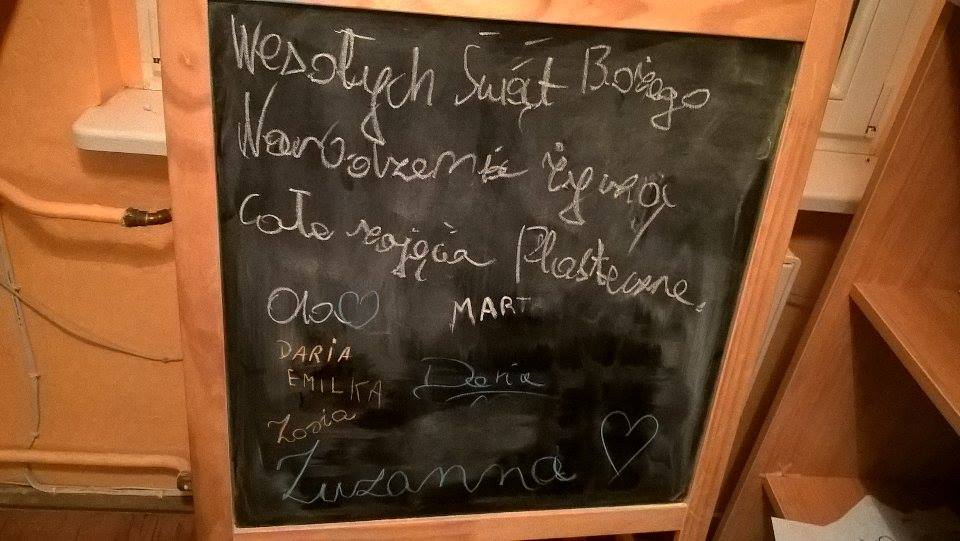 Wesołych Świąt Bożego
Narodzenia życzą
Całe zajęcia Plastyczne.
Ola MART
DARIA
EMILKA Daria
Zosia
Zuzanna